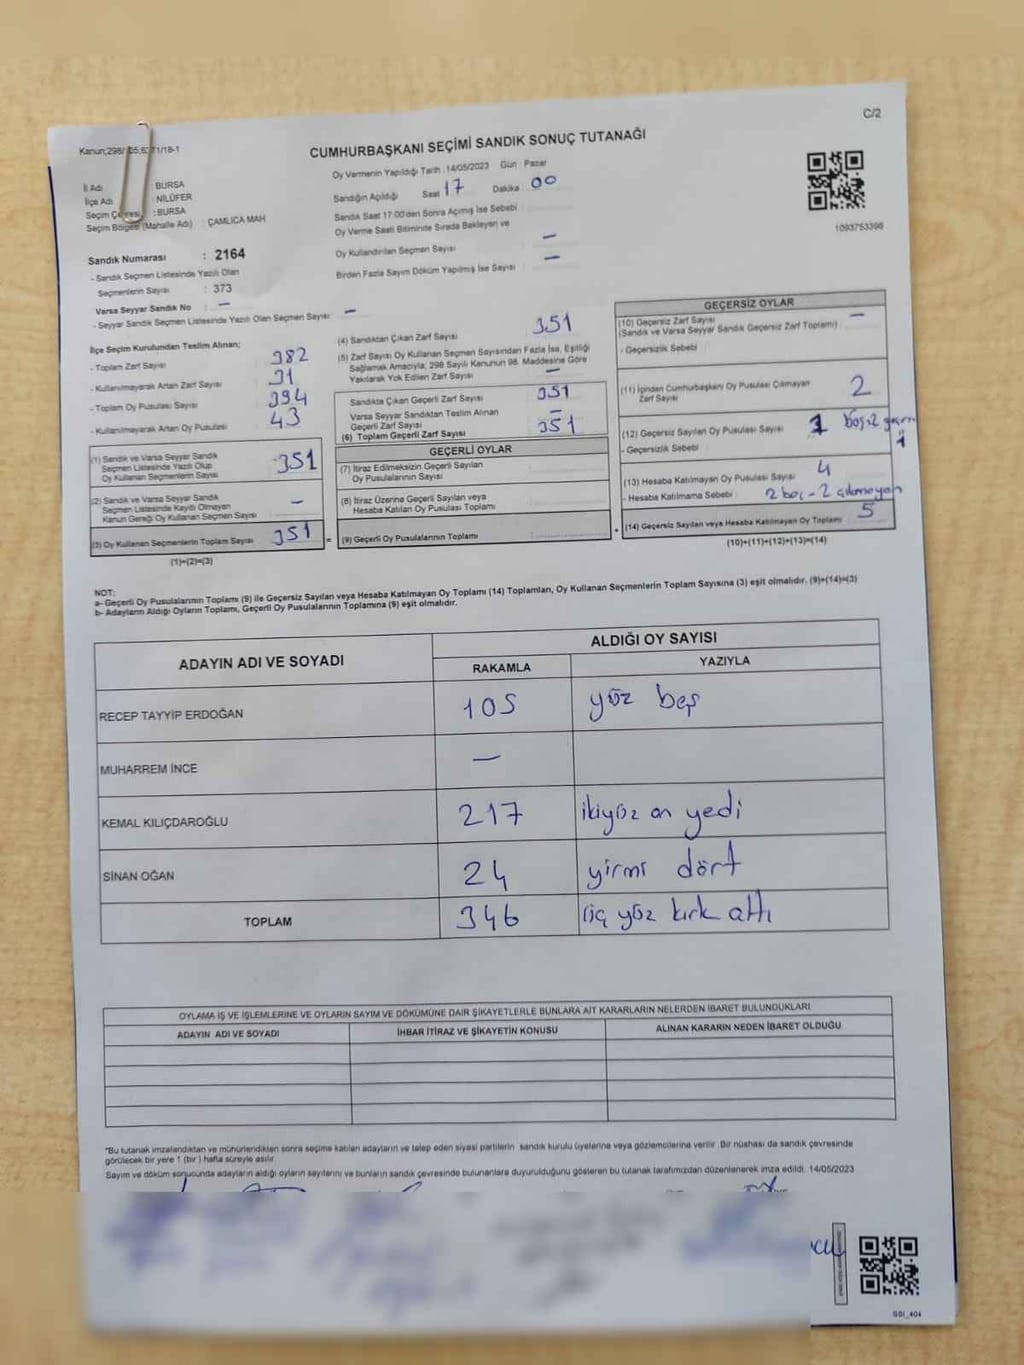 C/2
Kanun;298/
CUMHURBAŞKANI SEÇİMİ SANDIK SONUÇ TUTANAĞI
İl Adı : BURSA
İlçe Adı : NİLÜFER
Seçim : BURSA
Seçim Bölgesi (Mahalle Adı) : ÇAMLICA MAH
Sandık Numarası : 2164
- Sandık Seçmen Listesinde Yazılı Olan
Seçmenlerin Sayısı : 373
Varsa Seyyar Sandık No : –
- Seyyar Sandık Seçmen Listesinde Yazılı Olan Seçmen Sayısı –
Oy Vermenin Yapıldığı Tarih : 14/05/2023 Gün : Pazar
Sandığın Açıldığı Saat 17 Dakika 00
Sandık Saat 17.00'den Sonra Açmış İse Sebebi
Oy Verme Saati Bitiminde Sırada Bekleyen ve
Oy Kullandırılan Seçmen Sayısı –
Birden Fazla Sayım Döküm Yapılmış İse Sayısı –
1093753398
İlçe Seçim Kurulundan Teslim Alınan;
- Toplam Zarf Sayısı 382
- Kullanılmayarak Artan Zarf Sayısı 31
- Toplam Oy Pusulası Sayısı 394
- Kullanılmayarak Artan Oy Pusulası 43
(1) Sandık ve Varsa Seyyar Sandık
Seçmen Listesinde Yazılı Olup
Oy Kullanan Seçmenlerin Sayısı 351
(2) Sandık ve Varsa Seyyar Sandık
Seçmen Listesinde Kayıtlı Olmayan
Kanun Gereği Oy Kullanan Seçmen Sayısı –
(3) Oy Kullanan Seçmenlerin Toplam Sayısı 351 =
(1)+(2)=(3)
(4) Sandıktan Çıkan Zarf Sayısı 351
(5) Zarf Sayısı Oy Kullanan Seçmen Sayısından Fazla İse, Eşitliği
Sağlamak Amacıyla; 298 Sayılı Kanunun 98. Maddesine Göre
Yakılarak Yok Edilen Zarf Sayısı –
Sandıkta Çıkan Geçerli Zarf Sayısı 351
Varsa Seyyar Sandıktan Teslim Alınan
Geçerli Zarf Sayısı –
(6) Toplam Geçerli Zarf Sayısı 351
GEÇERLİ OYLAR
(7) İtiraz Edilmeksizin Geçerli Sayılan
Oy Pusulalarının Sayısı
(8) İtiraz Üzerine Geçerli Sayılan veya
Hesaba Katılan Oy Pusulası Toplamı
(9) Geçerli Oy Pusulalarının Toplamı +
GEÇERSİZ OYLAR
(10) Geçersiz Zarf Sayısı –
(Sandık ve Varsa Seyyar Sandık Geçersiz Zarf Toplamı)
- Geçersizlik Sebebi
(11) İçinden Cumhurbaşkanı Oy Pusulası Çıkmayan
Zarf Sayısı 2
(12) Geçersiz Sayılan Oy Pusulası Sayısı 1
- Geçersizlik Sebebi 1
(13) Hesaba Katılmayan Oy Pusulası Sayısı 4
- Hesaba Katılmama Sebebi 2 boş - 2 çıkmayan
(14) Geçersiz Sayılan veya Hesaba Katılmayan Oy Toplamı 5
(10)+(11)+(12)+(13)=(14)
NOT:
a- Geçerli Oy Pusulalarının Toplamı (9) ile Geçersiz Sayılan veya Hesaba Katılmayan Oy Toplamı (14) Toplamları, Oy Kullanan Seçmenlerin Toplam Sayısına (3) eşit olmalıdır. (9)+(14)=(3)
b- Adayların Aldığı Oyların Toplamı, Geçerli Oy Pusulalarının Toplamına (9) eşit olmalıdır.
ADAYIN ADI VE SOYADI ALDIĞI OY SAYISI
RAKAMLA YAZIYLA
RECEP TAYYİP ERDOĞAN 105 yüz beş
MUHARREM İNCE –
KEMAL KILIÇDAROĞLU 217 ikiyüz on yedi
SİNAN OĞAN 24 yirmi dört
TOPLAM 346 üç yüz kırk altı
OYLAMA İŞ VE İŞLEMLERİNE VE OYLARIN SAYIM VE DÖKÜMÜNE DAİR ŞİKAYETLERLE BUNLARA AİT KARARLARIN NELERDEN İBARET BULUNDUKLARI
ADAYIN ADI VE SOYADI İHBAR İTİRAZ VE ŞİKAYETİN KONUSU ALINAN KARARIN NEDEN İBARET OLDUĞU
*Bu tutanak imzalandıktan ve mühürlendikten sonra seçime katılan adayların ve talep eden siyasi partilerin sandık kurulu üyelerine veya gözlemcilerine verilir. Bir nüshası da sandık çevresinde
görülecek bir yere 1 (bir) hafta süreyle asılır.
Sayım ve döküm sonucunda adayların aldığı oyların sayılarını ve bunların sandık çevresinde bulunanlara duyurulduğunu gösteren bu tutanak tarafımızdan düzenlenerek imza edildi. 14/05/2023